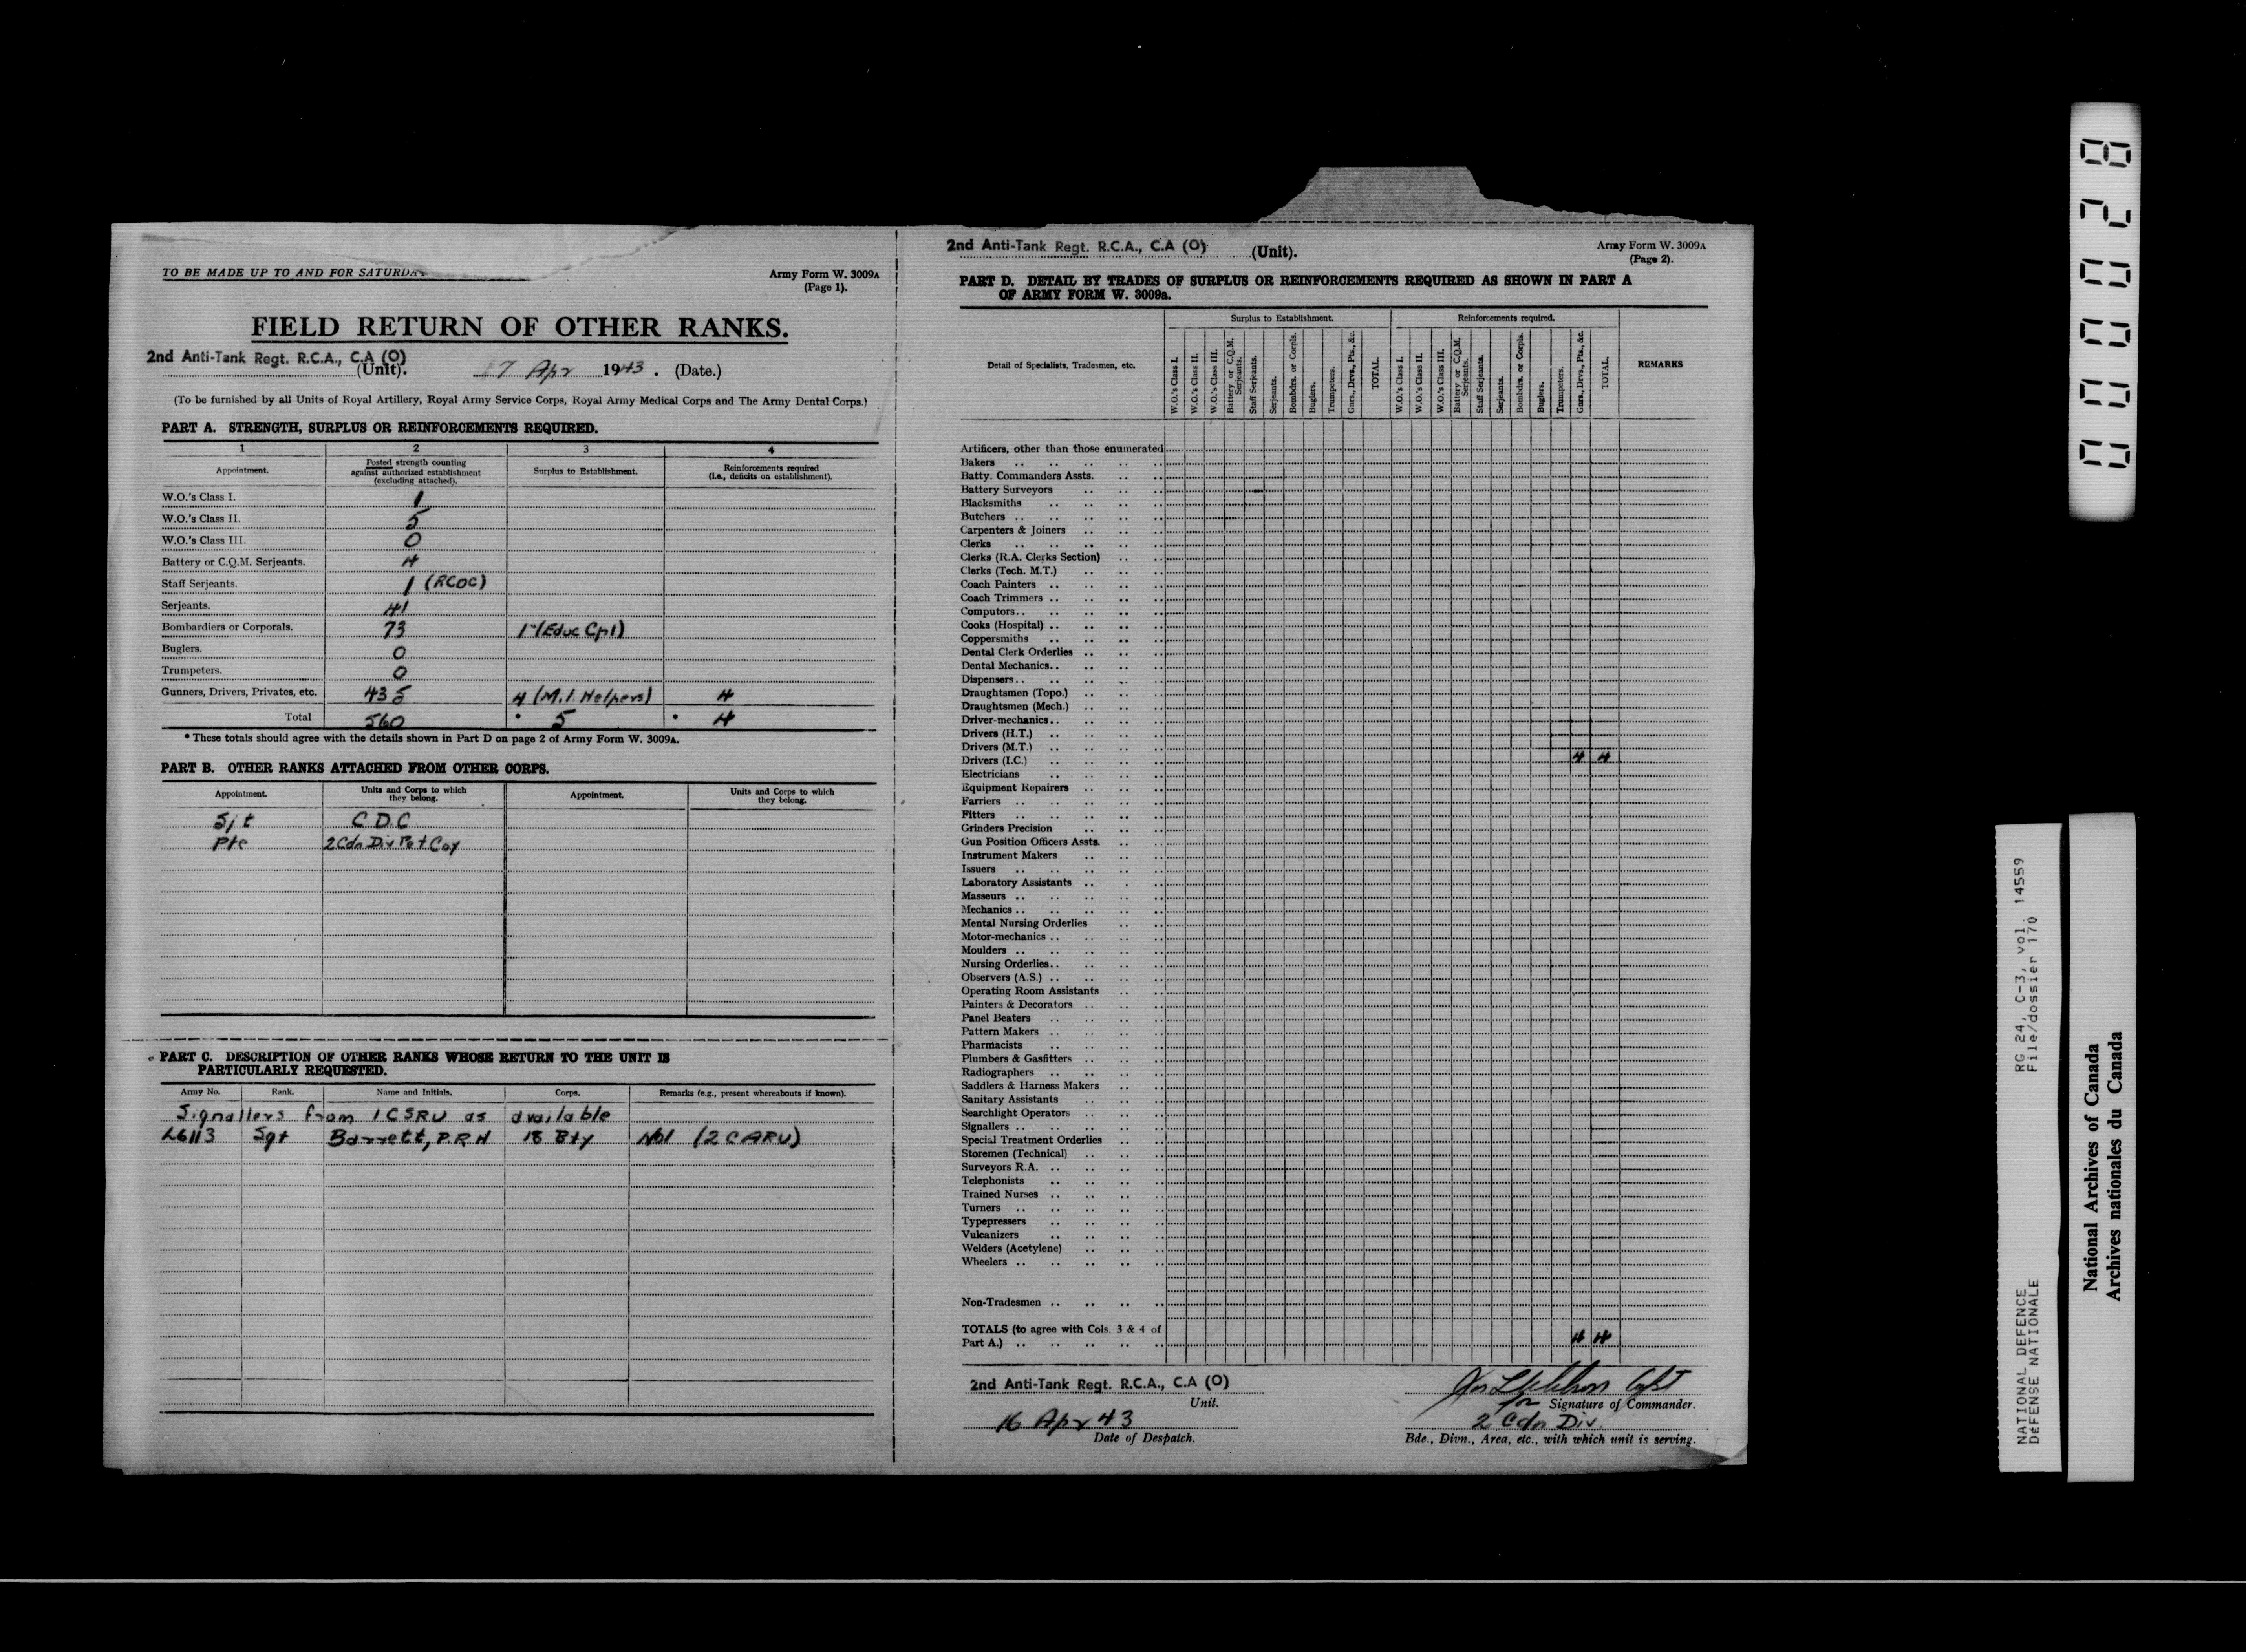 TO BE MADE UP TO AND FOR SATURDAY
Army Form W. 3009A
(Page 1).
FIELD RETURN OF OTHER RANKS.
2nd Anti-Tank Regt. R.C.A., C.A (O)
(Unit). 17 Apr 1943. (Date.)
(To be furnished by all Units of Royal Artillery, Royal Army Service Corps, Royal Army Medical Corps and The Army Dental Corps.)
PART A. STRENGTH, SURPLUS OR REINFORCEMENTS REQUIRED.
1 2 3 4
Appointment. Posted strength counting against authorized establishment (excluding attached). Surplus to Establishment. Reinforcements required (i.e., deficits on establishment).
W.O.'s Class I. 1
W.O.'s Class II. 5
W.O.'s Class III. 0
Battery or C.Q.M. Serjeants. 4
Staff Serjeants. 1 (RCOC)
Serjeants. 41
Bombardiers or Corporals. 73 1 (Educ Cpl)
Buglers. 0
Trumpeters. 0
Gunners, Drivers, Privates, etc. 435 4 (M.I. Helpers) 4
Total 560 * 5 * 4
* These totals should agree with the details shown in Part D on page 2 of Army Form W. 3009A.
PART B. OTHER RANKS ATTACHED FROM OTHER CORPS.
Appointment. Units and Corps to which they belong. Appointment. Units and Corps to which they belong.
Sjt C D C
Pte 2 Cdn Div Pet Coy
PART C. DESCRIPTION OF OTHER RANKS WHOSE RETURN TO THE UNIT IS
PARTICULARLY REQUESTED.
Army No. Rank. Name and Initials. Corps. Remarks (e.g., present whereabouts if known).
Signallers from 1 CSRU as available
L6113 Sgt Barrett, P.R.H 18 Bty No1 (2 CARU)
2nd Anti-Tank Regt. R.C.A., C.A (O) (Unit).
Army Form W. 3009A
(Page 2).
PART D. DETAIL BY TRADES OF SURPLUS OR REINFORCEMENTS REQUIRED AS SHOWN IN PART A
OF ARMY FORM W. 3009a.
Detail of Specialists, Tradesmen, etc. Surplus to Establishment. Reinforcements required. REMARKS
W.O.'s Class I. W.O.'s Class II. W.O.'s Class III. Battery or C.Q.M. Serjeants. Staff Serjeants. Serjeants. Bombdrs. or Corpls. Buglers. Trumpeters. Gnrs., Drvs., Pts., &c. TOTAL.
W.O.'s Class I. W.O.'s Class II. W.O.'s Class III. Battery or C.Q.M. Serjeants. Staff Serjeants. Serjeants. Bombdrs. or Corpls. Buglers. Trumpeters. Gnrs., Drvs., Pts., &c. TOTAL.
Artificers, other than those enumerated
Bakers
Batty. Commanders Assts.
Battery Surveyors
Blacksmiths
Butchers
Carpenters & Joiners
Clerks
Clerks (R.A. Clerks Section)
Clerks (Tech. M.T.)
Coach Painters
Coach Trimmers
Computors
Cooks (Hospital)
Coppersmiths
Dental Clerk Orderlies
Dental Mechanics
Dispensers
Draughtsmen (Topo.)
Draughtsmen (Mech.)
Driver-mechanics
Drivers (H.T.)
Drivers (M.T.)
Drivers (I.C.) 4 4
Electricians
Equipment Repairers
Farriers
Fitters
Grinders Precision
Gun Position Officers Assts.
Instrument Makers
Issuers
Laboratory Assistants
Masseurs
Mechanics
Mental Nursing Orderlies
Motor-mechanics
Moulders
Nursing Orderlies
Observers (A.S.)
Operating Room Assistants
Painters & Decorators
Panel Beaters
Pattern Makers
Pharmacists
Plumbers & Gasfitters
Radiographers
Saddlers & Harness Makers
Sanitary Assistants
Searchlight Operators
Signallers
Special Treatment Orderlies
Storemen (Technical)
Surveyors R.A.
Telephonists
Trained Nurses
Turners
Typepressers
Vulcanizers
Welders (Acetylene)
Wheelers
Non-Tradesmen
TOTALS (to agree with Cols. 3 & 4 of
Part A.) 4 4
2nd Anti-Tank Regt. R.C.A., C.A (O)
Unit.
16 Apr 43
Date of Despatch.
Capt
for Signature of Commander.
2 Cdn Div.
Bde., Divn., Area, etc., with which unit is serving.
000028
RG 24, C-3, vol. 14559
File/dossier 170
NATIONAL DEFENCE
DEFENSE NATIONALE
National Archives of Canada
Archives nationales du Canada